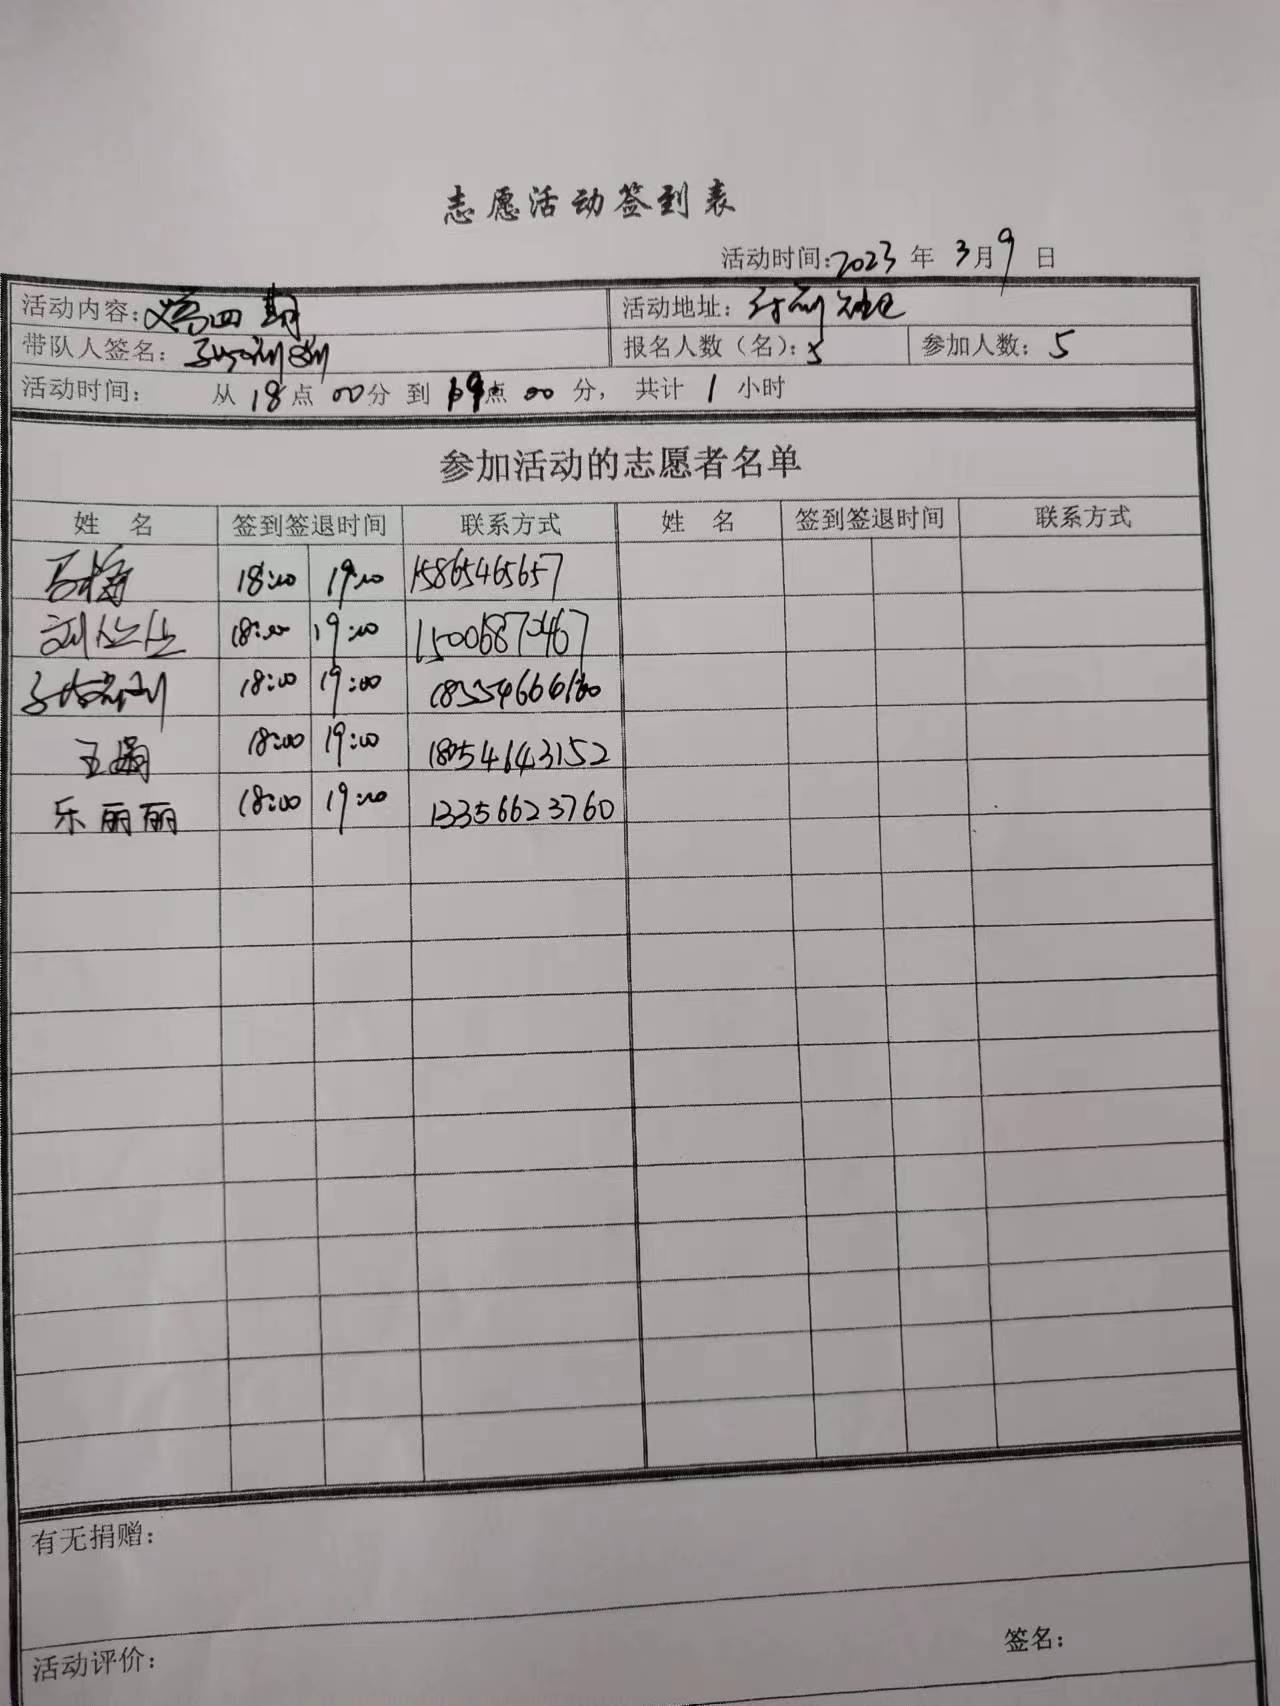 志愿活动签到表
活动时间:2023 年 3月9日
活动内容: 四期 活动地址:
带队人签名: 报名人数（名）:5 参加人数: 5
活动时间: 从 18点 00分 到 19点 00 分, 共计 1 小时
参加活动的志愿者名单
姓 名 签到签退时间 联系方式 姓 名 签到签退时间 联系方式
18:00 19:00 15865465657
18:00 19:00
18:00 19:00
王娟 18:00 19:00
乐丽丽 18:00 19:00 13356623760
有无捐赠:
签名:
活动评价: